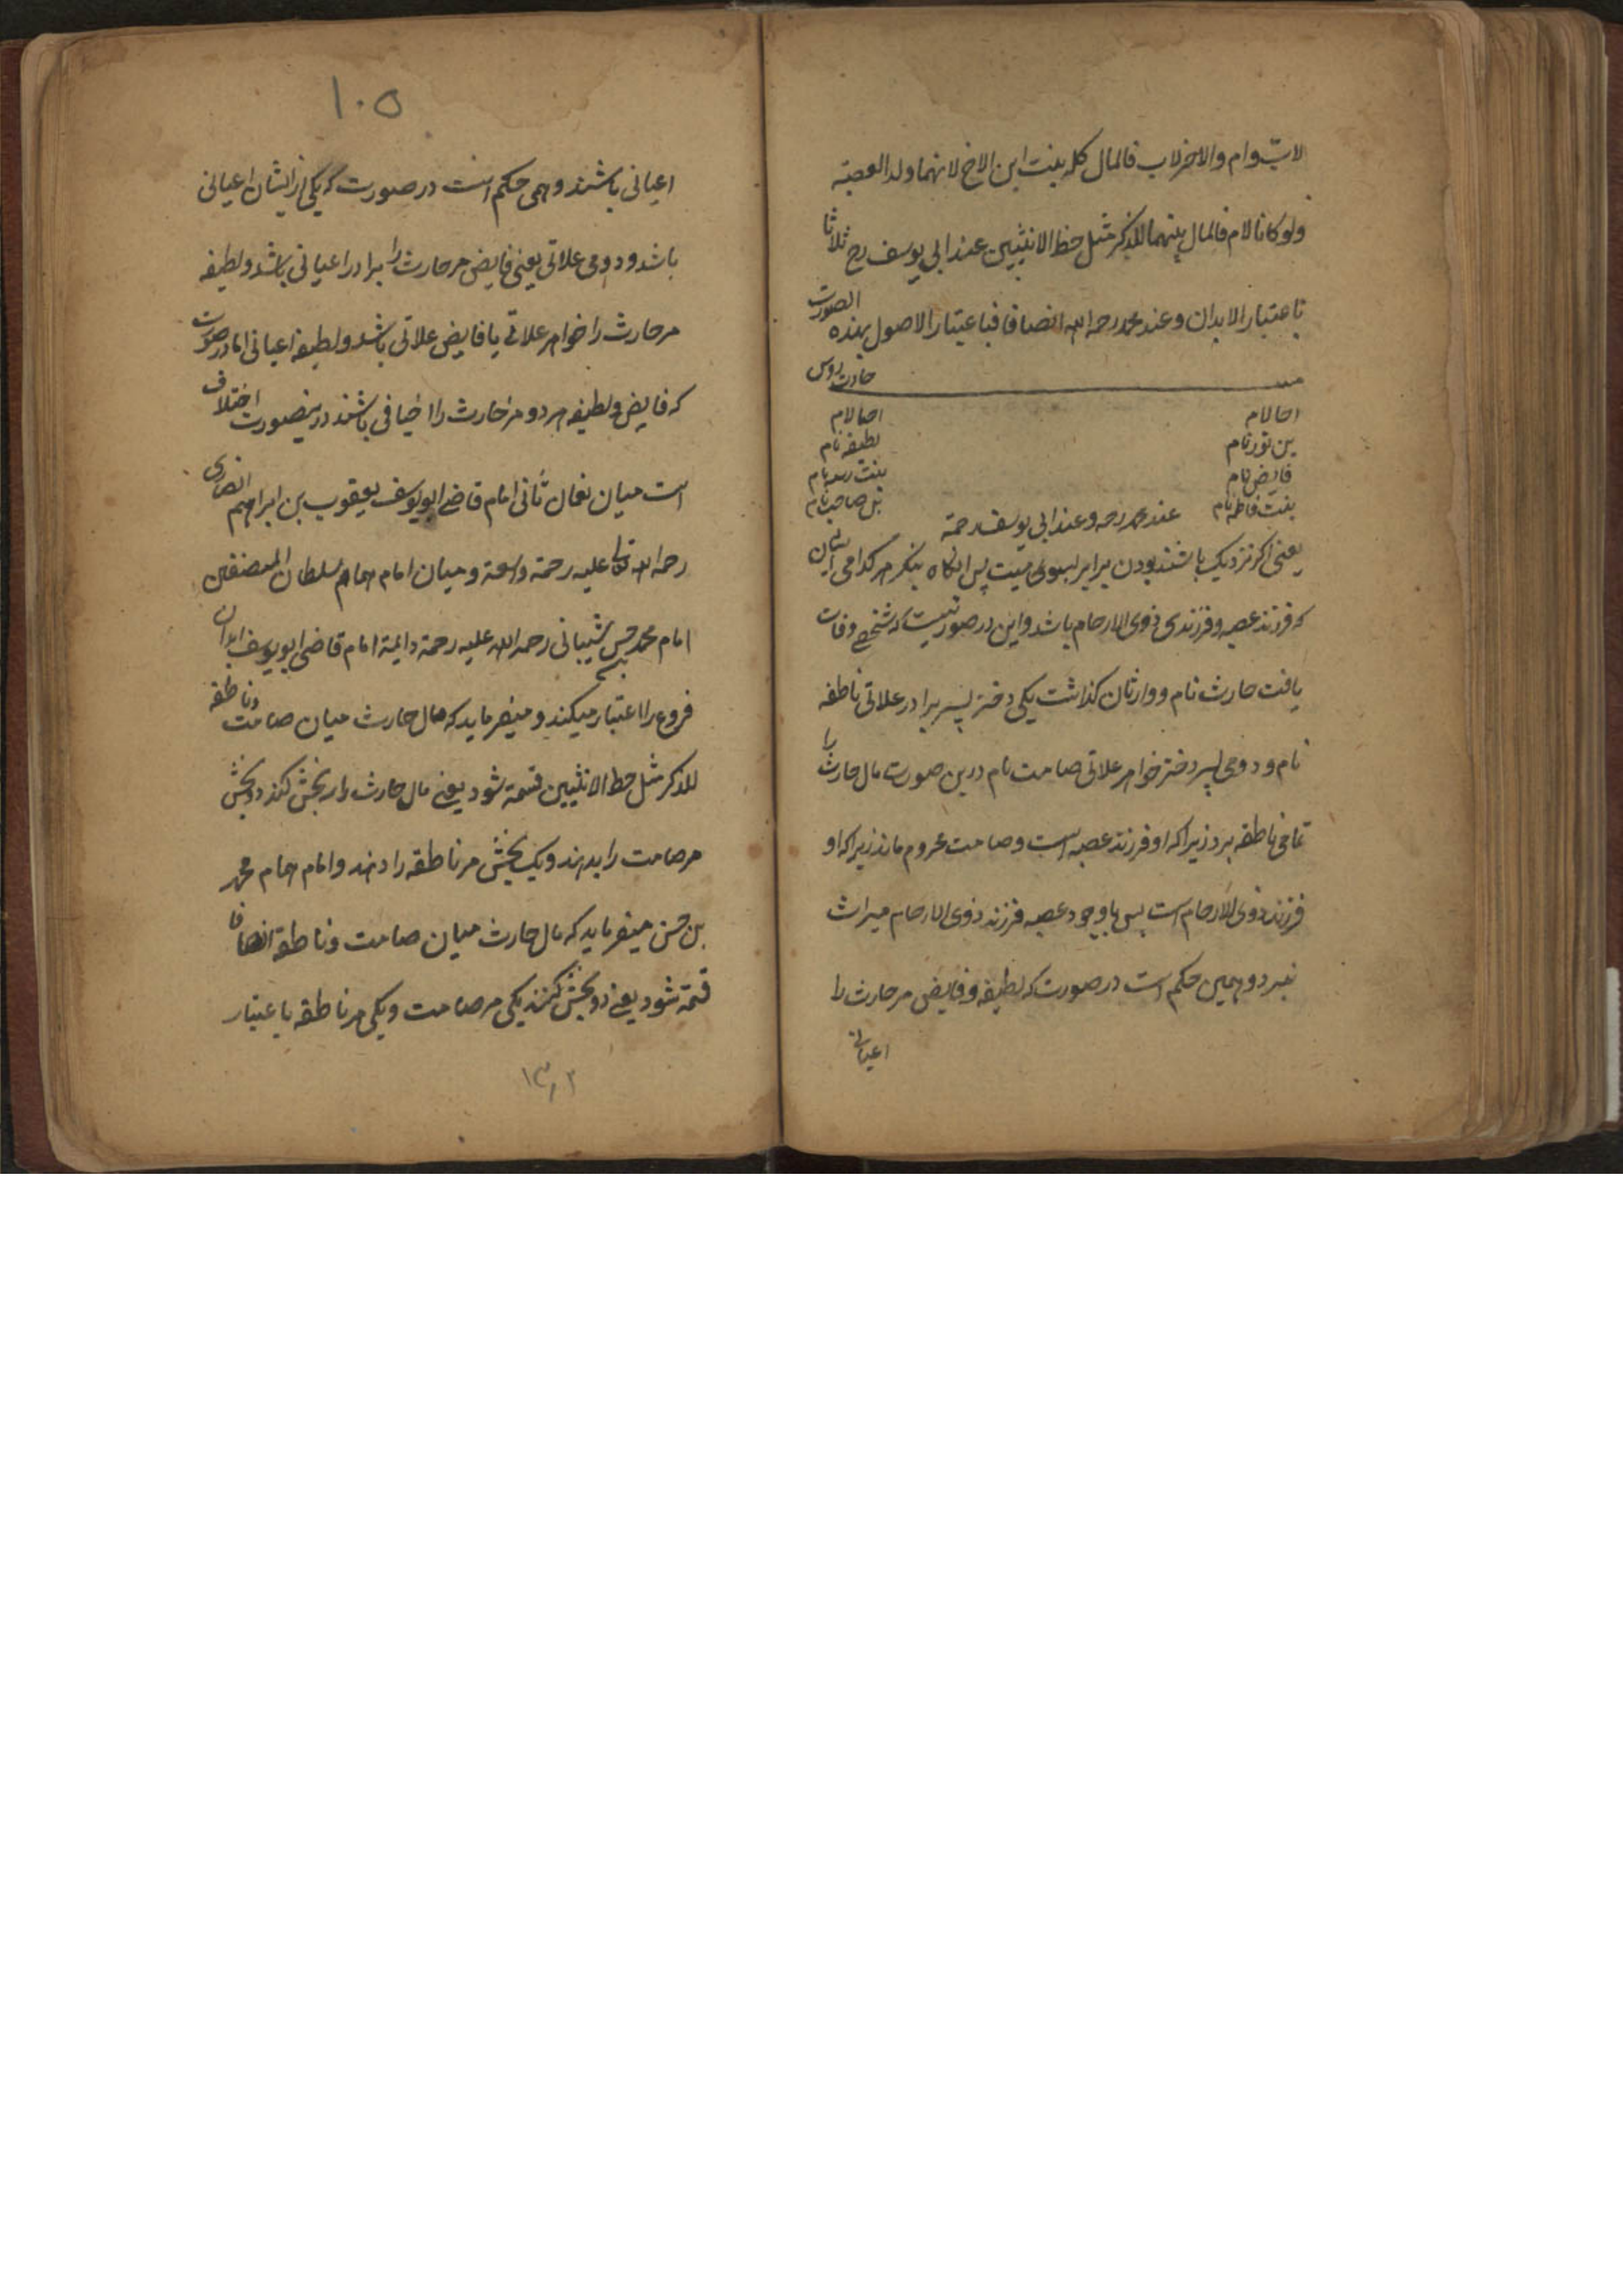 لاب وام والاخر لاب فالمال كله لبنت ابن الاخ لانهما ولد العصبة
ولو كانا لام فالمال بينهما للذكر مثل حظ الانثيين عند ابي يوسف رح ثلاثا
باعتبار الابدان وعند محمد رحمه الله انصافا فباعتبار الاصول بهذه الصورت
حارث
اخا لام
بن نام
فايض نام
بنت فاطمه نام
اختا لام
لطيفه نام
بنت نام
بن صاحب نام
عند محمد رحه وعند ابي يوسف رحمة
يعنى اكر نزديك باشند بودن برابر بسوى ميت پس انكاه بنكر هر كدامى ايشان
كه فرزند عصبه و فرزندى ذوى الارحام باشد واين در صورتيست كه شخصے وفات
يافت حارث نام و وارثان كذاشت يكى دختر پسر برادر علاتى ناطقه
نام و دومى پسر دختر خواهر علاتى صامت نام درين صورت مال حارث را
تمامى ناطقه برد زيراكه او فرزند عصبه است وصامت محروم ماند زيراكه او
فرزند ذوى الارحام است پس باوجود عصبه فرزند ذوى الارحام ميراث
نبرد و همين حكم است در صورت كه لطيفه و فايض مر حارث را
اعيانى
١٠٥
اعيانى باشند وهمى حكم است در صورت كه يكى از ايشان اعيانى
باشد و دومى علاتى يعنى فايض مر حارث را برادر اعيانى باشد و لطيفه
مر حارث را خواهر علاتے يا فايض علاتى باشد و لطيفه اعيانى اما در صورت
كه فايض و لطيفه هر دو مر حارث را اخيافى باشند درينصورت اختلاف
است ميان نعمان ثانى امام قاضے ابو يوسف يعقوب بن ابراهيم انصارى
رحمه الله تعالى عليه رحمة واسعة و ميان امام همام سلطان المصنفين
امام محمد حسن شيبانى رحمه الله عليه رحمة دايمة امام قاضى ابو يوسف ابدان
فروع را اعتبار ميكند و ميفرمايد كه مال حارث ميان صامت و ناطقه
للذكر مثل حظ الانثيين قسمة شود يعنے مال حارث را سه بخش كنند دو بخش
مر صامت را بدهند و يك بخش مر ناطقه را دهند و امام همام محمد
بن حسن ميفرمايد كه مال حارث ميان صامت و ناطقه انصافا
قسمة شود يعنے دو بخش كنند يكى مر صامت و يكى مر ناطقه باعتبار